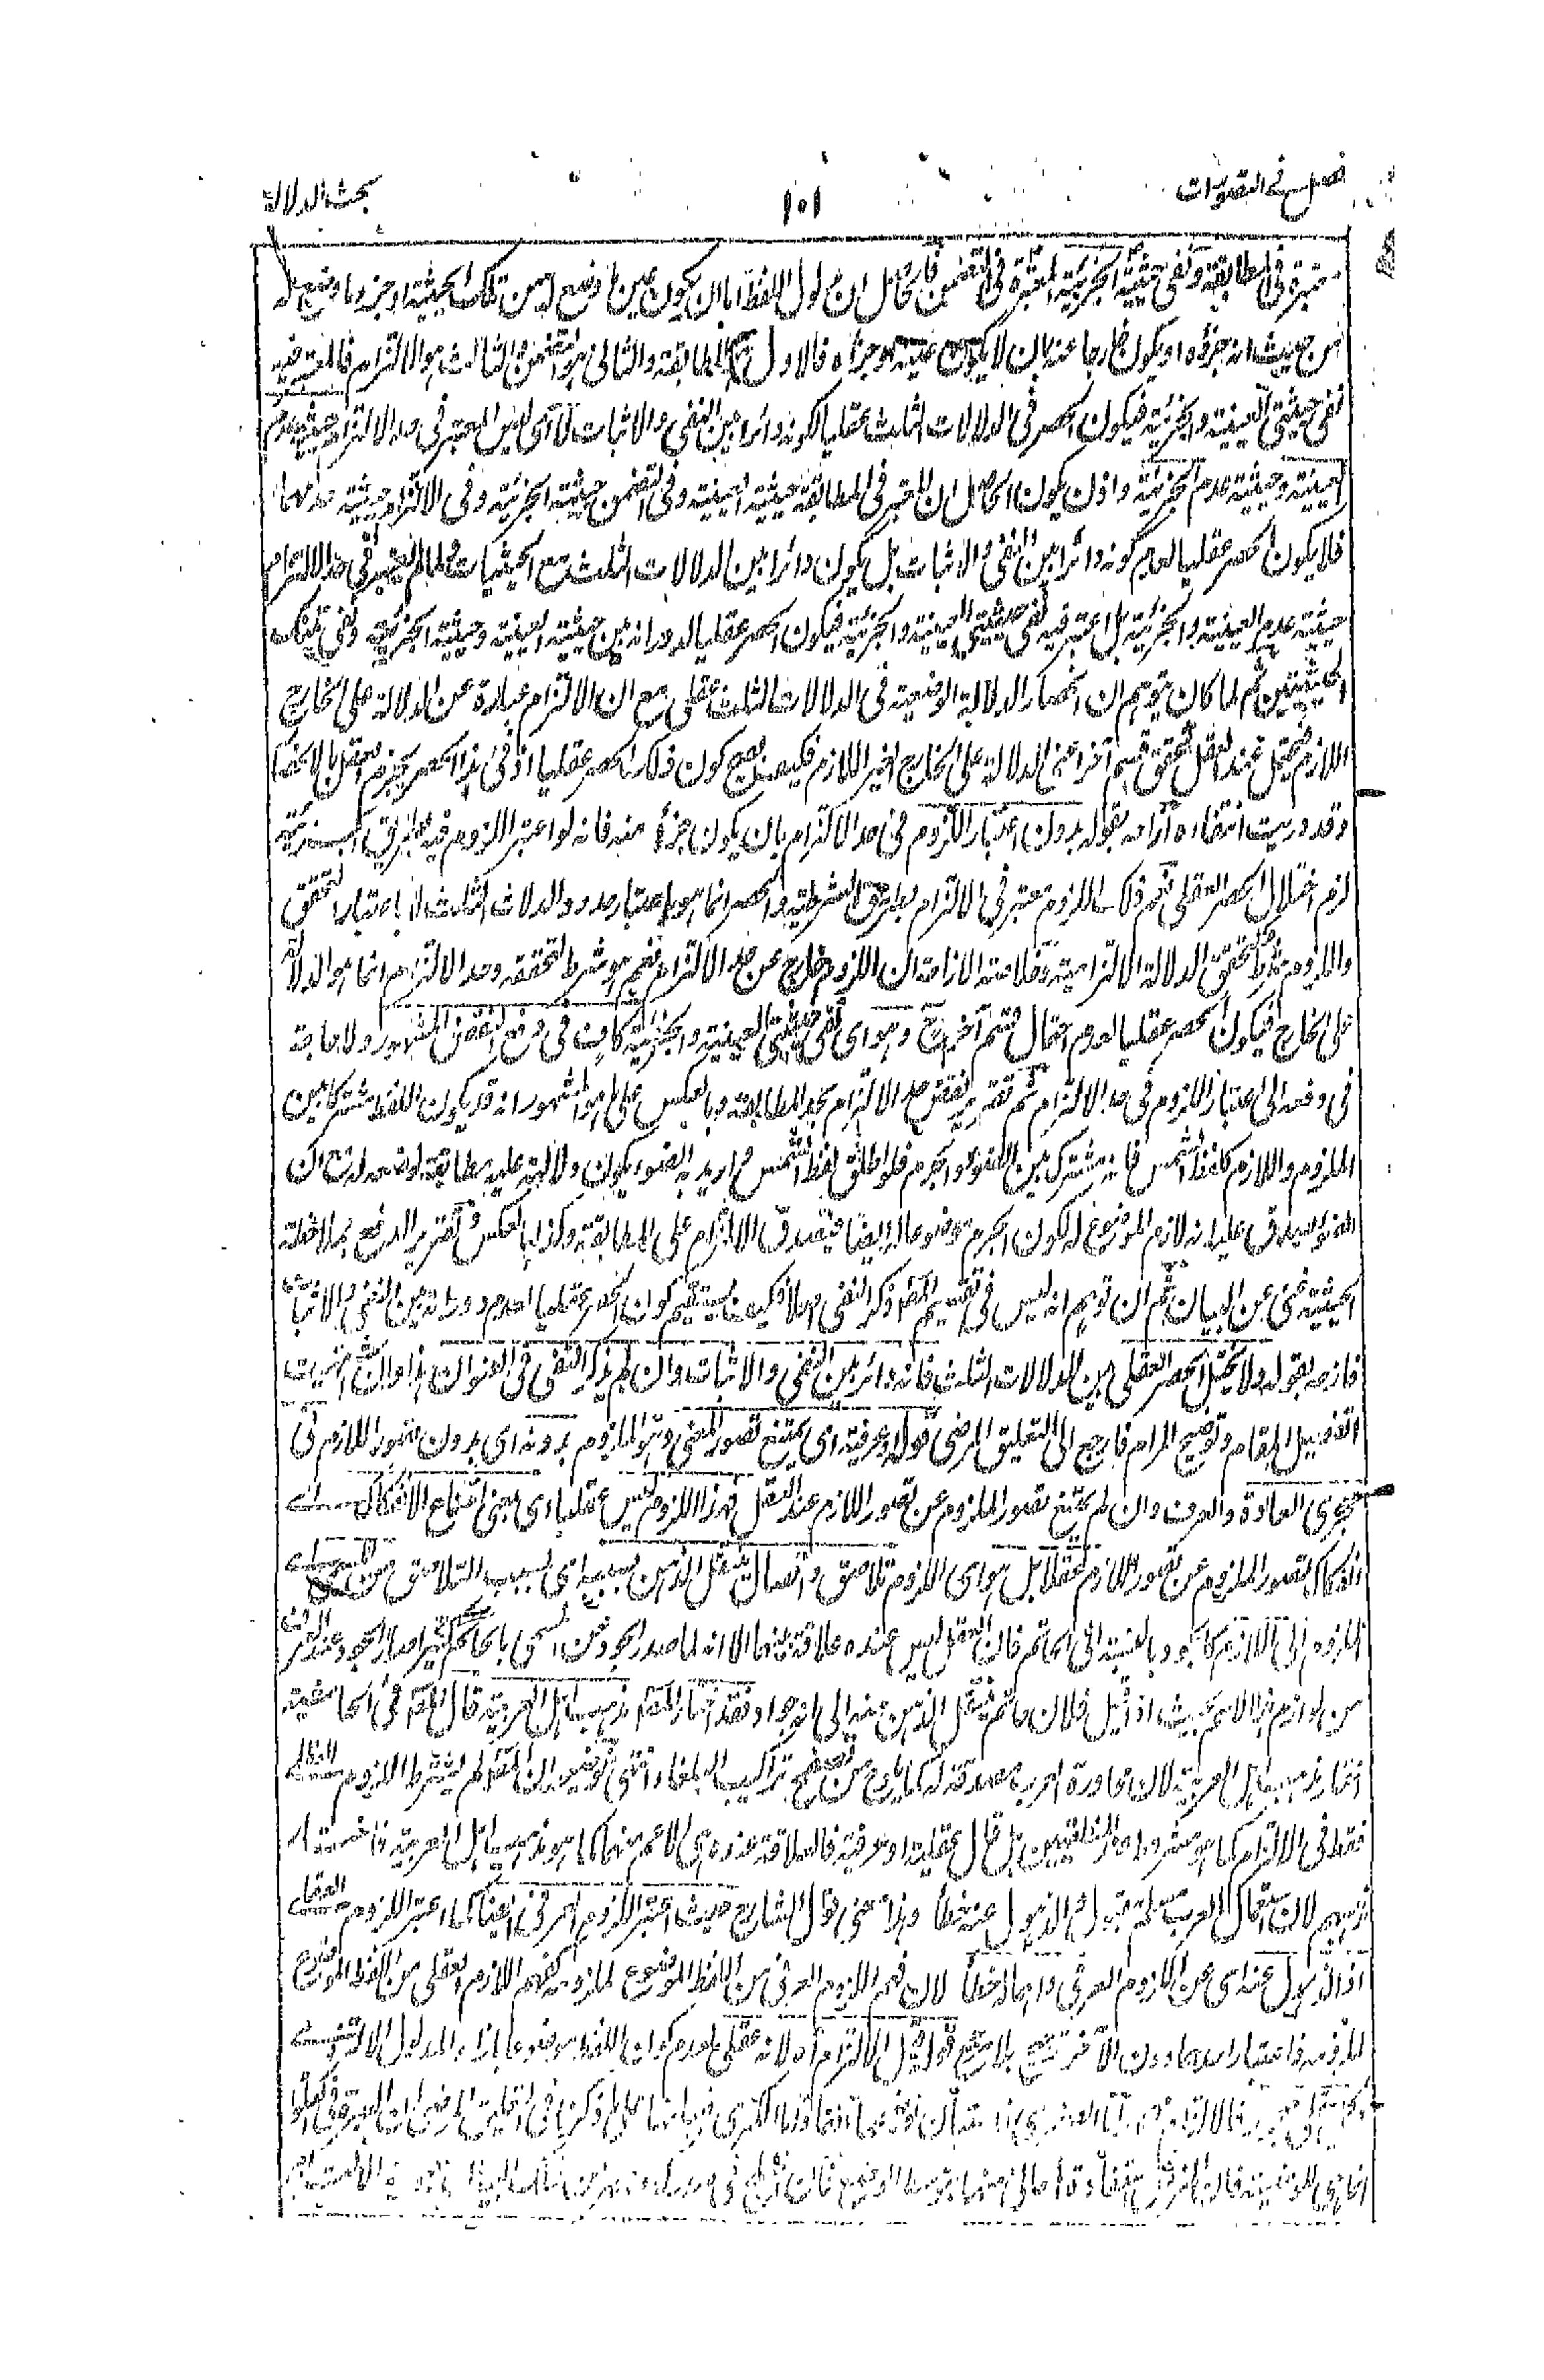 فصل في التصورات
١٠١
بحث الدلالة
معتبرة في المطابقة ونفى حيثية الجزئية المعتبرة في التضمن فالحاصل ان مدلول اللفظ اما ان يكون عين ما وضع له من تلك الحيثية او جزء ما وضع له
من حيث انه جزؤه او يكون خارجا عنه بان لا يكون عينه وجزأه فالاول هو المطابقة والثاني هو التضمن والثالث هو الالتزام فالمعتبر فيه
نفى حيثيتى العينية والجزئية فيكون الحصر في الدلالات الثلث عقليا لكونه دائرا بين النفى والاثبات لا اى ليس المعتبر في حد الالتزام حيثية عدم
العينية وحيثية عدم الجزئية واذن يكون الحاصل ان المعتبر في المطابقة حيثية العينية وفي التضمن حيثية الجزئية وفي الالتزام حيثية عدمهما
فلا يكون الحصر عقليا لعدم كونه دائرا بين النفى والاثبات بل يكون دائرا بين الدلالات الثلث مع الحيثيات فلما لم يعتبر في حد الالتزام
حيثية عدم العينية والجزئية بل اعتبر فيه نفى حيثيتى العينية والجزئية فيكون الحصر عقليا لدورانه بين حيثية العينية وحيثية الجزئية ونفى تينك
الحيثيتين ثم لما كان يتوهم ان انحصار الدلالة الوضعية في الدلالات الثلث عقلى مع ان الالتزام عبارة عن الدلالة على الخارج
اللازم فيحتمل عند العقل تحقق قسم آخر اعنى الدلالة على الخارج الغير اللازم فكيف يصح كون ذلك الحصر عقليا اذ في هذا الحصر يجزم العقل بالانحصار
وقد دريت انتفاءه ازاحه بقوله بدون اعتبار اللزوم في حد الالتزام بان يكون جزءً منه فانه لو اعتبر اللزوم فيه بطريق الجزئية
لزم اختلال الحصر العقلى نعم ذلك اللزوم معتبر في الالتزام بطريق الشرطية والحصر انما هو باعتبار حدود الدلالات الثلث لا باعتبار التحقق
واللزوم شرط لتحقق الدلالة الالتزامية وخلاصة الازاحة ان اللزوم خارج عن حد الالتزام نعم هو شرط لتحققه وحد الالتزام انما هو الدلالة
على الخارج فيكون الحصر عقليا لعدم احتمال قسم آخر ح وهو اى نفى حيثيتى العينية والجزئية كاف في دفع النقض المشهور ولا حاجة
في دفعه الى اعتبار اللزوم في حد الالتزام ثم تقرير نقض حد الالتزام بحد المطابقة وبالعكس على ما هو المشهور انه قد يكون اللفظ مشتركا بين
الملزوم واللازم كلفظ الشمس فانه مشترك بين الضوء والجرم فلو اطلق لفظ الشمس واريد به الضوء يكون دلالته عليه مطابقة لوضعه له مع ان
الضوء يصدق عليه انه لازم الموضوع له لكون الجرم موضوعا له ايضا فيصدق الالتزام على المطابقة وكذا بالعكس وتقرير الدفع بملاحظة
الحيثية غنى عن البيان ثم ان توهم انه ليس في تقسيم المص ذكر النفى اصلا فكيف يستقيم كون الحصر عقليا لعدم دورانه بين النفى والاثبات
فازاحه بقوله ولا يختل الحصر العقلى بين الدلالات الثلث فانه دائر بين النفى والاثبات وان لم يذكر النفى في العنوان هذا وان اشتهيت
تفصيل المقام وتوضيح المرام فارجع الى التعليق المرضى قوله او عرفية اى يمتنع تصور المعنى وهو الملزوم بدونه اى بدون تصور اللازم في
مجرى العادة والعرف وان لم يمتنع تصور الملزوم عن تصور اللازم عند العقل فهذا اللزوم ليس عقليا اى بمعنى امتناع الانفكاك اى
انفكاك تصور الملزوم عن تصور اللازم عقلا بل هو اى اللزوم تلاصق واتصال ينتقل الذهن بسببه اى بسبب التلاصق من
الملزوم الى اللازم كالجود بالنسبة الى الحاتم فان العقل ليس عنده علاقة بينهما الا انه لما صدر الجود عن المسمى بالحاتم كثيرا صار الجود عند
من لوازم هذا الاسم بحيث اذا قيل فلان حاتم ينتقل الذهن منه الى انه جواد فقد اختار المص مذهب اهل العربية قال المص في الحاشية
اختار مذهب اهل العربية لان محاورة العرب مصدقة له كما يلوح من تصفح تراكيب البلغاء انتهى توضيحه ان المص لم يشترط اللزوم العقلى
فقط في الالتزام كما هو مشهور المنطقيين بل قال عقلية او عرفية فالعلاقة عنده هى الاعم منهما كما هو مذهب اهل العربية فاختار
مذهبهم لان استعمال العرب ملتبس قبوله والذهول عنه خطأ وهذا معنى قول الشارح حيث اعتبر اللزوم العرفى ايضا كما اعتبر اللزوم العقلى
اذ الذهول عنه اى عن اللزوم العرفى واهماله خطأ لان فهم اللزوم العرفى من اللفظ الموضوع لملزومه كفهم اللازم العقلى من اللفظ الموضوع
لملزومه فاعتبار احدهما دون الآخر ترجيح بلا مرجح قوله قيل الالتزام آه لانه عقلى لعدم كون اللفظ موضوعا بازاء المدلول الالتزامى